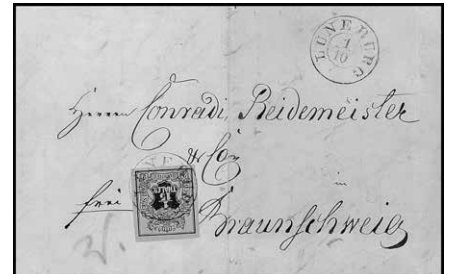 LÜNEBURG
1
10
Herren Conradi, Reidemeister
& Co
in
frei
Braunschweig